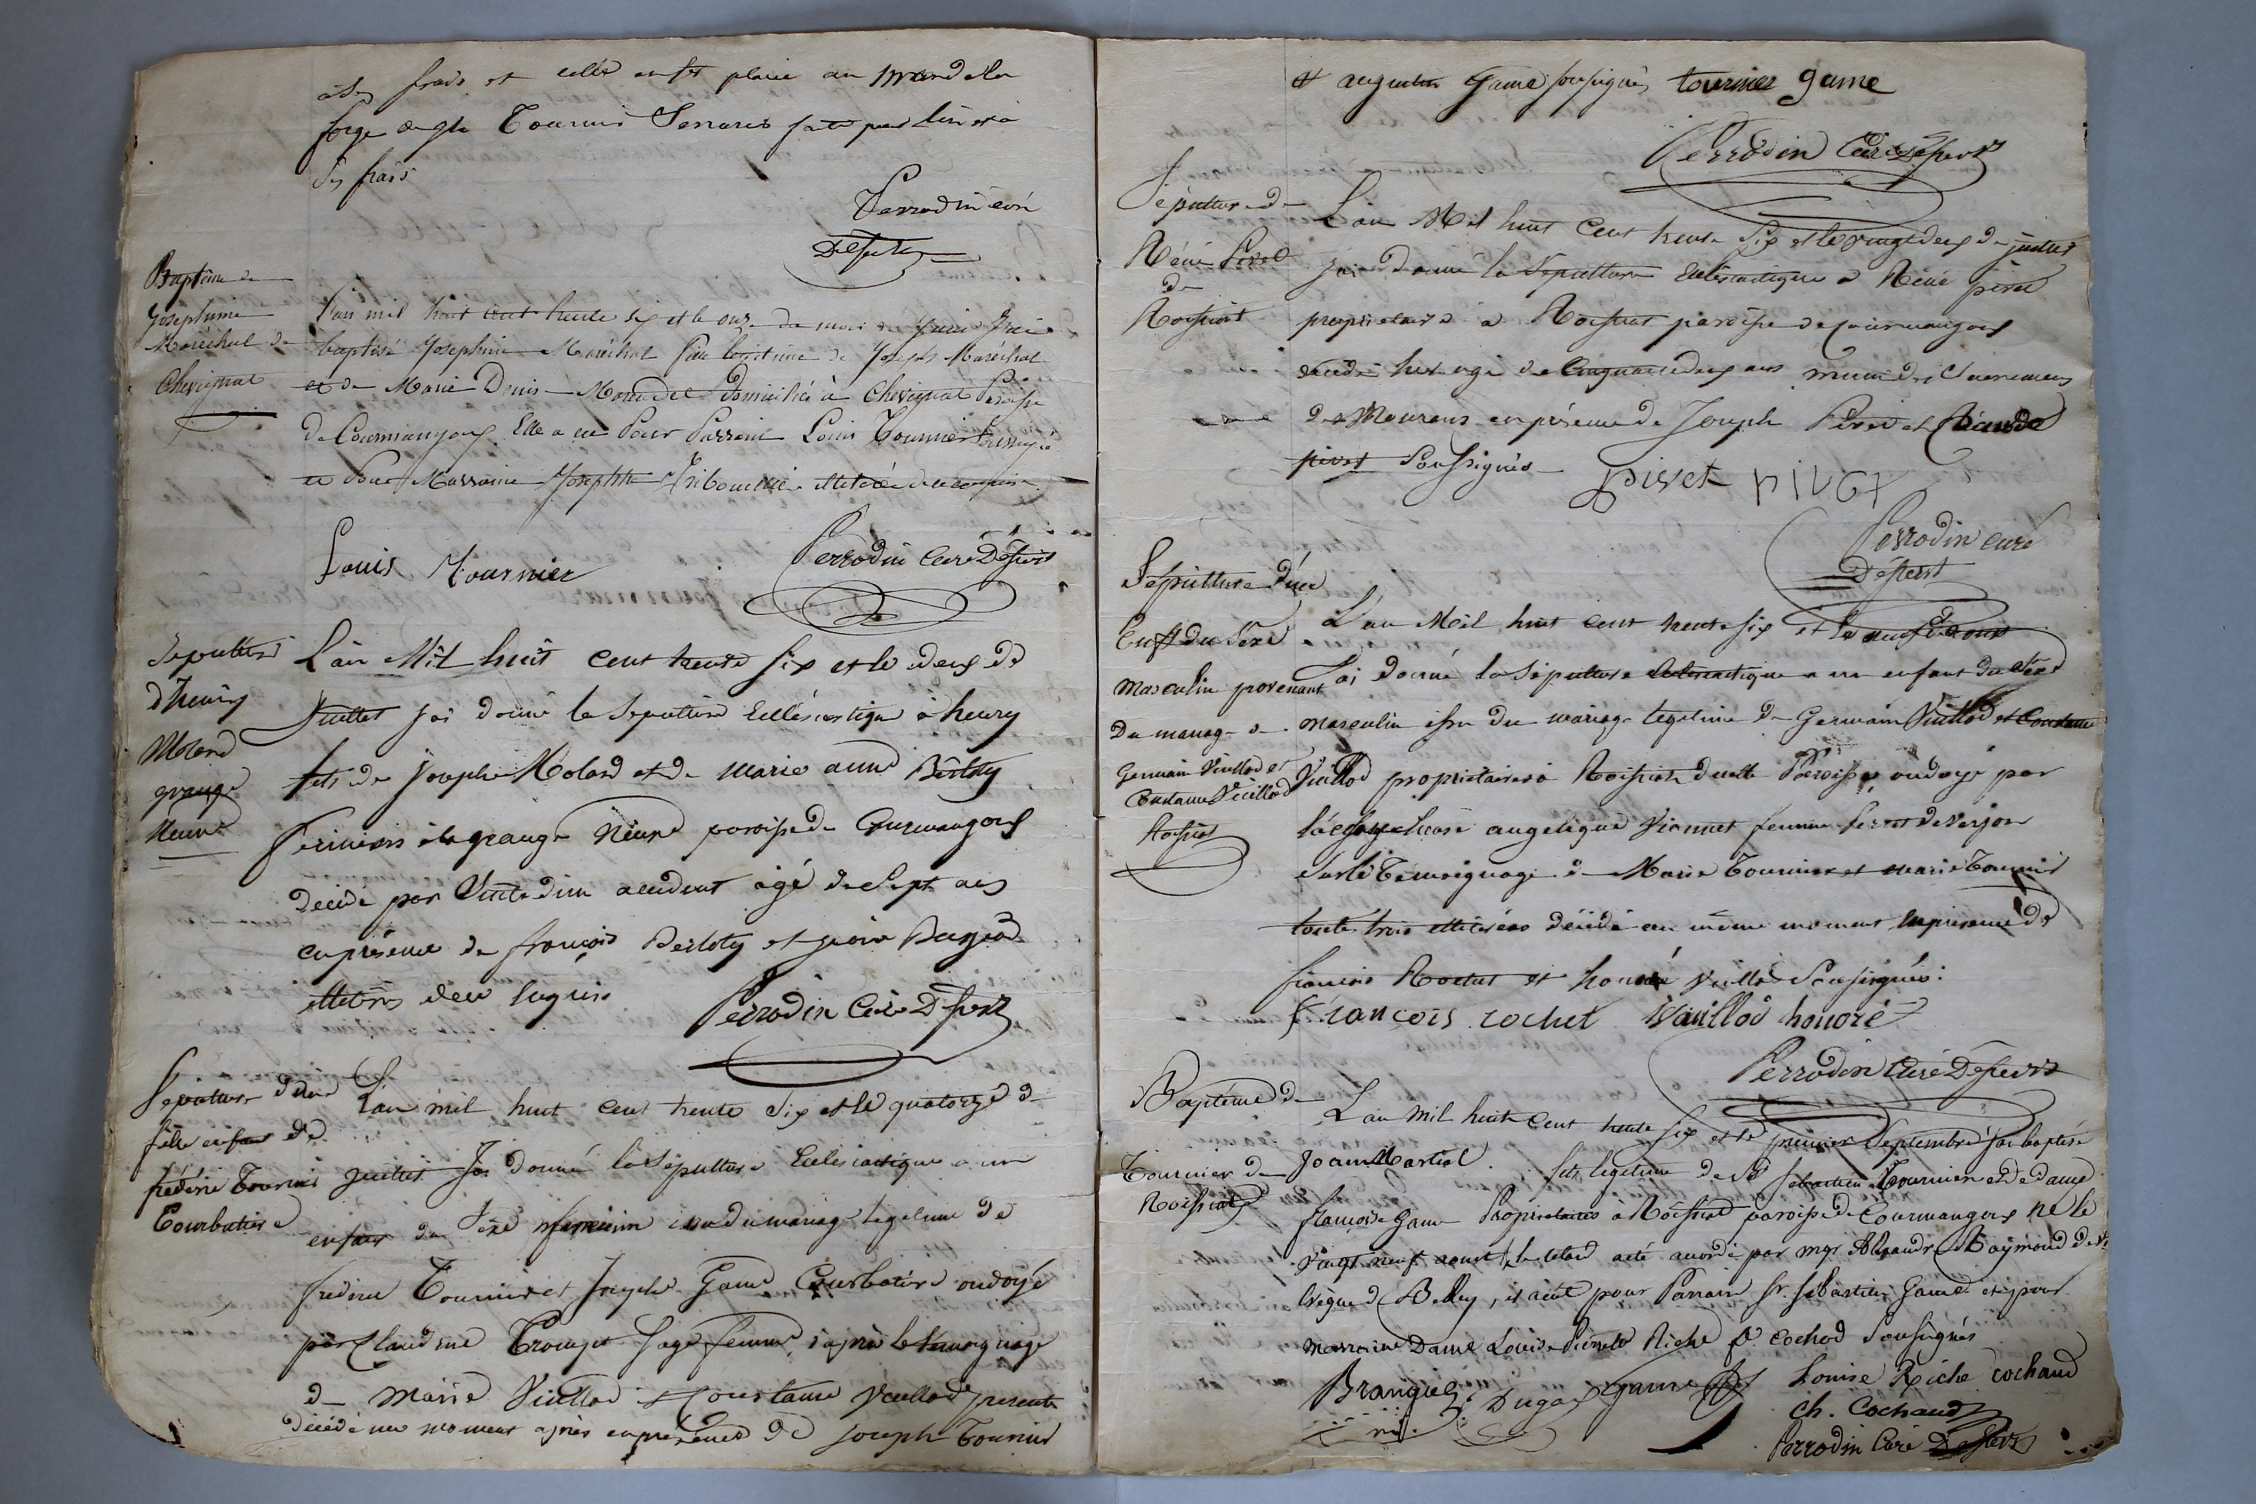 à Ses frais et celle en fer placée au
forge de gle Tournier Serrurier faite par lui et à
Ses frais
Perrodin curé
Baptême de
Josephine
Maréchal de
Chevignat
L'an mil huit cent trente six et le onze du mois de Juin J'ai
baptisé Josephine Maréchal fille légitime de Joseph Maréchal
et de Marie Denis Monadel domiciliés à Chevignat Paroisse
de Courmangoux. Elle a eu Pour Parrain Louis Tournier Soussigné
et Pour Marraine Josephte Tribouillet illetérée de ce enquise
Louis Tournier
Perrodin Curé Depert
Sepulture
d'henry
Molard
grange
Neuve
L'an Mil huit cent trente six et le deux de
Juillet J'ai donné la Sepulture Ecclésiastique à henry
fils de Joseph Molard et de Marie anne Berloty
fermiers à la grange Neuve paroisse de Courmangoux
décédé par Suite d'un accident agé de Sept ans
en présence de françois Berloty et
illetérés de ce enquis
Perrodin Curé Depert
Sepulture d'une
fille enfant de
fréderic Tournier
Courbatière
L'an mil huit cent trente Six et le quatorze de
juillet J'ai donné la Sépulture Ecclésiastique a un
enfant du Sexe feminin issu du mariage legitime de
frederic Tournier et Josephe Game Courbatière ondoyé
par Claudine Tronget Sage femme, d'après le temoignage
de Marie Vuillod et Constance Vuillod presente
décédé un moment après en présence de Joseph Tournier
et augustin Game Soussignés tournier game
Perrodin Curé Depert
Sépulture de
Réné Pivet
de
Roissiat
L'an Mil huit Cent trente Six et le vingt deux de juillet
j'ai donné la Sepulture Ecclésiastique a Réné pivet
propriétaire à Roissiat paroisse de Courmangoux
décédé hier agé de Cinquante deux ans muni des Sacremens
des Mourans en présence de Joseph Pivet et Claude
pivet Soussignés
pivet pivet
Perrodin curé
Depert
Sépulture d'un
Enft du Sexe
Masculin provenant
Du mariage de
Germain Vuillod et
Constance Vuillod
Roissiat
L'an Mil huit cent trente six et le neuf d'aout
J'ai donné la Sépulture Ecclésiastique a un enfant du Sexe
masculin issu du mariage legitime de Germain Vuillod et Constance
Vuillod propriétaires à Roissiat de cette Paroisse, ondoyé par
angelique Vionnet femme feret de Verjon
Sur le Témoignage de Marie Tournier et marie Tournier
toutes trois illetérées décédé au même moment en présence de
françois Rochet et honoré Vuillod Soussignés.
françois rochet Vuillod honoré
Perrodin Curé Depert
Baptême de
Tournier de
Roissiat
L'an mil huit cent trente six et le premier Septembre j'ai baptisé
Joann Martial fils legitime de Sr Sebastien Tournier et de dame
françoise Game Propriétaires à Roissiat paroisse de Courmangoux né le
vingt neuf aoust, le retard a été accordé par mgr Alexandre Raymond Devie
Evêque de Belley, il a eut pour Parrain Sr. Sébastien Game et pour
marraine Dame Louise Pierrette Riche fe Cochod Soussignés
Duga Game Louise Riche cochaud
ch. Cochaud
Perrodin Curé Depert